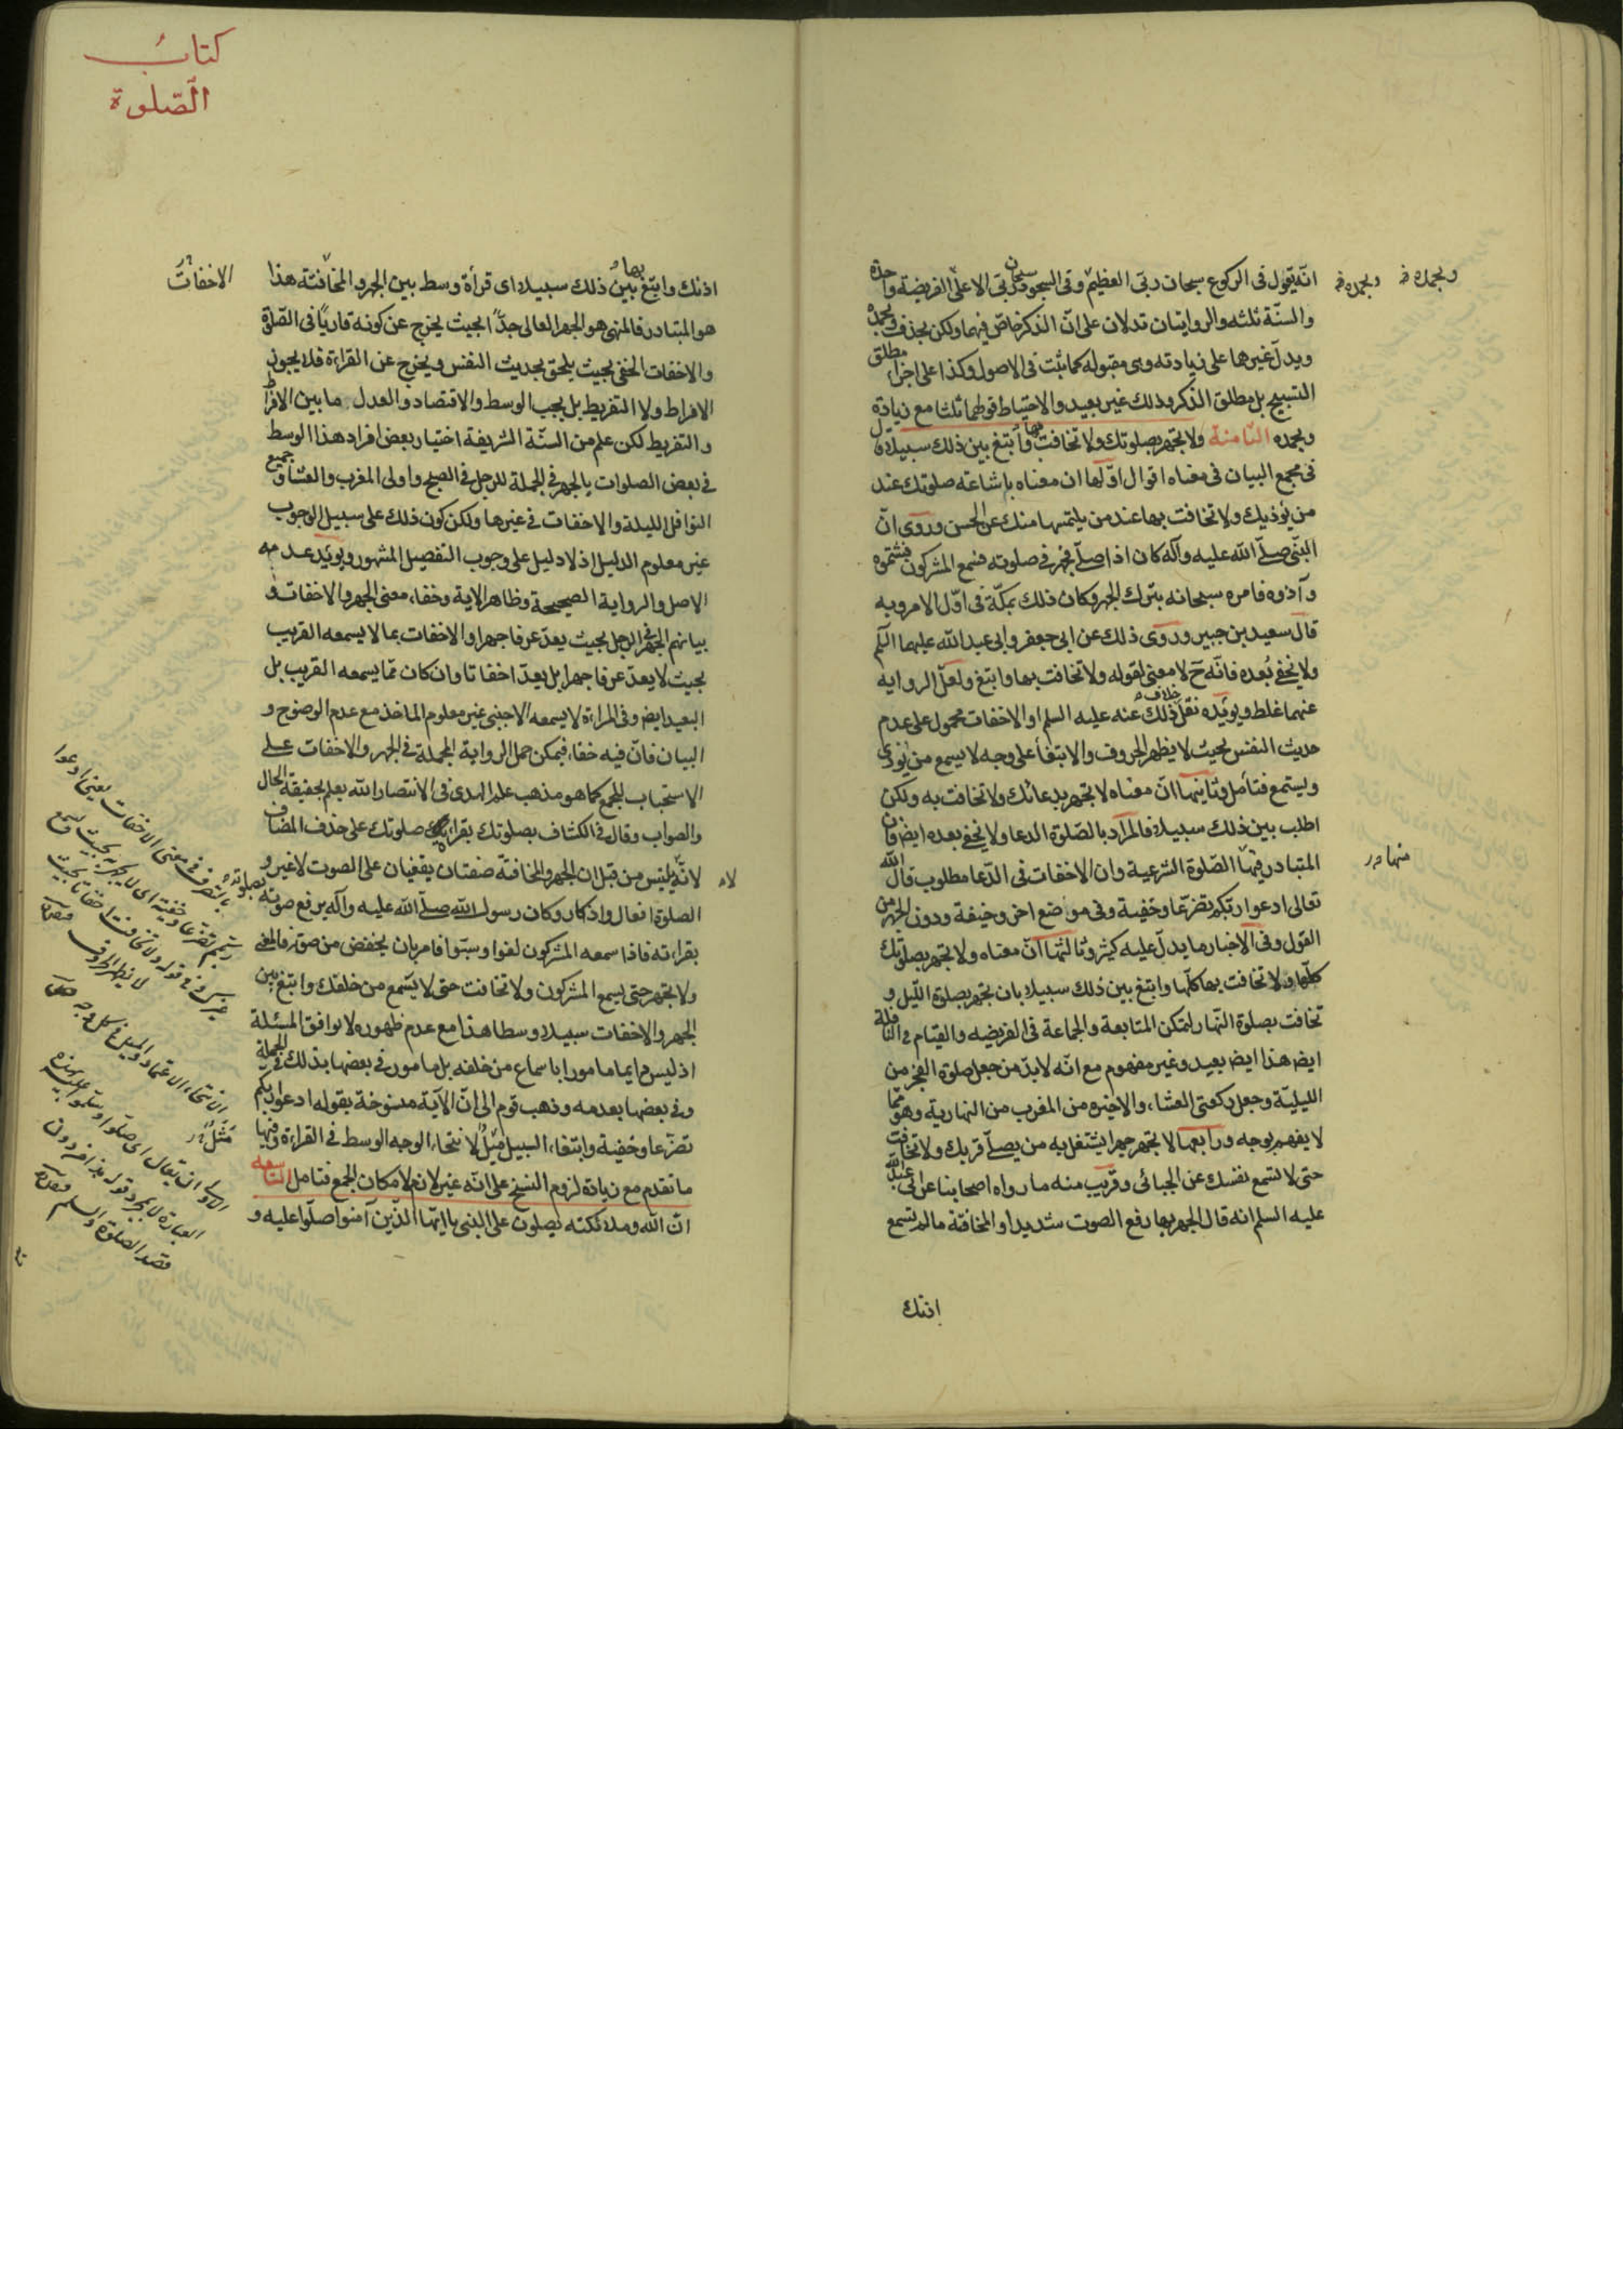 وبحمده وبحمده
انه يقول فى الركوع سبحان ربى العظيم وفى السجود سبحان ربى الاعلى الفريضة واحدة
والسنة ثلثه والروايتان تدلان على ان الذكر خاص فيهما ولكن بحذف وبحمده
ويدل غيرها على زيادته وهى مقبوله كما ثبت فى الاصول وكذا على اجزاء مطلق
التسبيح بل مطلق الذكر وذلك غير بعيد والاحتياط قولهما ثلثا مع زيادة
وبحمده الثامنة ولا تجهر بصلوتك ولا تخافت بها وابتغ بين ذلك سبيلا
فى مجمع البيان فى معناه اقوال اولها ان معناه باشاعة صلوتك عند
من يؤذيك ولا تخافت بها عند من يلتمسها منك عن الحسن وروى ان
النبى صلى الله عليه وآله كان اذا صلى فجهر فى صلوته فسمع المشركون فشتموه
وآذوه فامره سبحانه بترك الجهر وكان ذلك بمكة فى اول الامر وبه
قال سعيد بن جبير وروى ذلك عن ابى جعفر وابى عبد الله عليهما السلم
ولا يخفى بعده فانه ح لا معنى لقوله ولا تخافت بها وابتغ ولعل الرواية
عنهما غلط ويؤيده نقل خلاف ذلك عنه عليه السلم او الاخفات محمول على عدم
حديث النفس بحيث لا يظهر الحروف والابتغاء على وجه لا يسمع من يؤذى
ويستمع فتامل وثانيها ان معناه لا تجهر بدعائك ولا تخافت به ولكن
اطلب بين ذلك سبيلا فالمراد بالصلوة الدعا ولا يخفى بعده ايض فان
المتبادر فيها الصلوة الشرعية وان الاخفات فى الدعا مطلوب قال الله
منها
تعالى ادعوا ربكم تضرعا وخفية وفى مواضع اخر وخيفة ودون الجهر من
القول وفى الاخبار ما يدل عليه كثير وثالثها ان معناه ولا تجهر بصلوتك
كلها ولا تخافت بها كلها وابتغ بين ذلك سبيلا بان تجهر بصلوة الليل و
تخافت بصلوة النهار لتمكن المتابعة والجماعة فى الفريضه والقيام فى النافلة
ايض هذا ايض بعيد وغير مفهوم مع انه لا بد من جعل صلوة الفجر من
الليلية وجعل ركعتى العشاء والاخيره من المغرب من النهارية وهو مما
لا يفهم بوجه ورابعها لا تجهر جهرا يشتغل به من يصلى قربك ولا تخافت
حتى لا تسمع نفسك عن الجبائى وقريب منه ما رواه اصحابنا عن ابى عبد الله
عليه السلم انه قال الجهر بها رفع الصوت شديدا والمخافتة ما لم تسمع
اذنك
كتاب
الصلوة
اذنك وابتغ بين ذلك سبيلا اى قرأة وسط بين الجهر والمخافتة هذا
بها
الاخفات
هو المتبادر فالمنهى هو الجهر العالى جدا بحيث يخرج عن كونه قاريا فى الصلوة
والاخفات الخفى بحيث يلحق بحديث النفس ويخرج عن القراءة فلا يجوز
الافراط ولا التفريط بل يجب الوسط والاقتصاد والعدل ما بين الافراط
والتفريط لكن علم من السنة الشريفة اختيار بعض افراد هذا الوسط
فى بعض الصلوات بالجهر فى الجملة للرجل فى الصبح واولى المغرب والعشاء وجميع
النوافل الليلة والاخفات فى غيرها ولكن كون ذلك على سبيل الوجوب
غير معلوم الدليل اذ لا دليل على وجوب التفصيل المشهور ويؤيد عدمه
الاصل والرواية الصحيحة وظاهر الاية وخفاء معنى الجهر والاخفات و
بيانهم الجهر فى الرجل بحيث يعد عرفا جهرا والاخفات بما لا يسمعه القريب
بحيث لا يعد عرفا جهرا بل يعد اخفاتا وان كان مما يسمعه القريب بل
البعيد ايض وفى المراءة لا يسمعه الاجنبى غير معلوم الماخذ مع عدم الوضوح و
البيان فان فيه خفاء فيمكن حمل الرواية المجملة فى الجهر والاخفات على
الاستحباب للجمع كما هو مذهب علم الهدى فى الانتصار الله يعلم بحقيقة الحال
والصواب وقال فى الكشاف بصلوتك بقراءة صلوتك على حذف المضاف
لانه لا يلتبس من قبل ان الجهر والمخافتة صفتان يقفيان على الصوت لا غير و
الصلوة افعال واذكار وكان رسول الله صلى الله عليه وآله يرفع صوته
بقراءته فاذا سمعه المشركون لغوا وسبوا فامر بان يخفض من صوته فالمعنى
ولا تجهر حتى يسمع المشركون ولا تخافت حتى لا يسمع من خلفك وابتغ بين
الجهر والاخفات سبيلا وسطا هذا مع عدم ظهوره لا يوافق المسئلة
اذ ليس دايما مامورا باسماع من خلفه بل مامور فى بعضها بذلك فى الجملة
وفى بعضها بعدمه وذهب قوم الى ان الآية منسوخة بقوله ادعوا ربكم
تضرعا وخفية وابتغاء السبيل مثل لانتحاء الوجه الوسط فى القراءة وفيها
ما تقدم مع زيادة لزوم النسخ على انه غير لازم لامكان الجمع فتامل التاسعه
ان الله وملائكته يصلون على النبى يا ايها الذين آمنوا صلوا عليه و
بالتصرف فى معنى الاخفات يعنى ادعوا
ربكم تضرعا وخفية اى لا يجهر به بحيث يسمع
الانتحاء الاعتماد والميل فى كل وجه